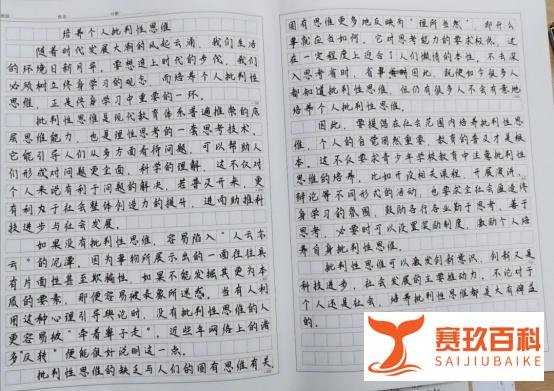 培养个人批判性思维
随着时代发展大潮的风起云涌，我们生活
的环境日新月异，要想追上时代的步伐，我们
必须树立终身学习的观念，而培养个人批判性
思维，正是终身学习中重要的一环。
批判性思维是现代教育体系普遍推崇的底
层思维能力，也是理性思考的一套思考技术。
它能引导人们从多方面看待问题，可以帮助人
们形成对问题更全面，科学的理解，这不仅对
个人来说有利于问题的解决，若普及开来，更
有利于社会整体创造力的提升，进而助推科
技进步与社会发展。
如果没有批判性思维，容易陷入“人云亦
云”的泥潭，因为事物所展示出的一面往往具
有片面性甚至欺骗性，如果不能发掘其更为本
质的要素，那便容易被表象所迷惑，当有人利
用这种心理引导舆论时，没有批判性思维的人
更容易被“牵着鼻子走”，近些年网络上的诸
多反转“便能很好说明这一点。
批判性思维的缺乏与人们的固有思维有关
固有思维更多地反映为“理所当然”，即什么
事就应当如何，它对思考能力的要求较低，这
在一定程度上迎合了人们懒惰的本性，不去深
入思考省时，省事因此，既便如今很多人
都知道批判性思维，但仍有很多人不会有意地
培养个人批判性思维。
因此，要提倡在社会范围内培养批判性思
维，个人的自觉固然重要，教育的普及才是根
本，这不仅要求青少年学校教育中注意批判性
思维的培养，比如开设相关课程，开展演讲、
辩论等不同形式的活动，也要求全社会营造终
身学习的氛围，鼓励各行各业勤于思考，善于
思考，必要时可以设置奖励制度，激励个人培
养自身批判性思维。
批判性思维可以激发创新意识，创新又是
科技进步，社会发展的主要推动力，不论对于
个人还是社会，培养批判性思维都是大有裨益
的。
赛玖百科
SAIJIUBAIKE